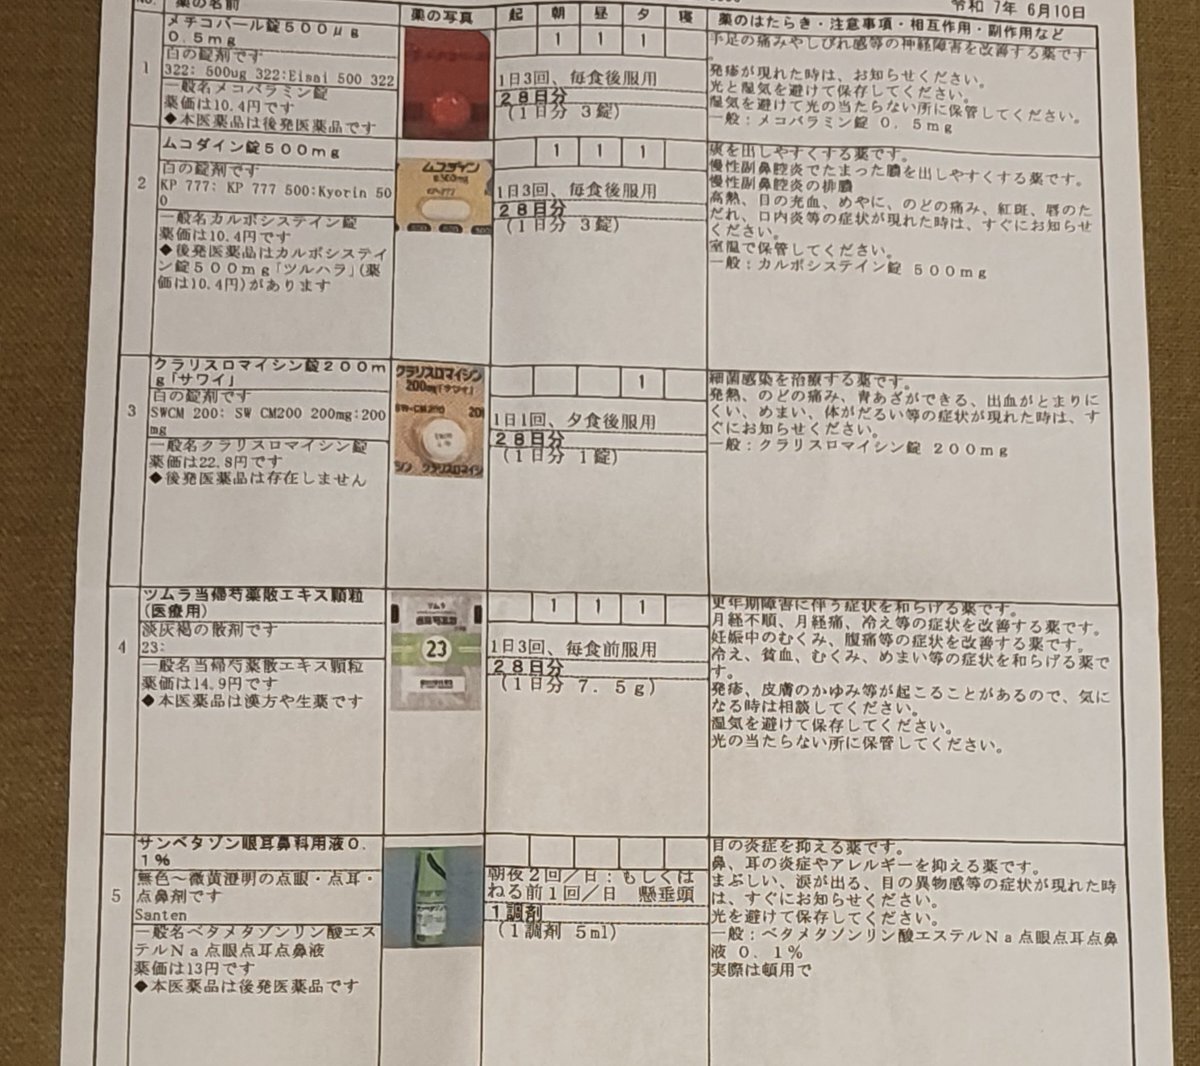 薬の名前 薬の写真 起 朝 昼 夕 寝 薬のはたらき・注意事項・相互作用・副作用など
令和 7年 6月10日
1
メチコバール錠500μg
0.5mg
白の錠剤です
322: 500ug 322:Eisai 500 322
一般名メコバラミン錠
薬価は10.4円です
◆本医薬品は後発医薬品です
1 1 1
1日3回、毎食後服用
28日分
(1日分 3錠)
手足の痛みやしびれ感等の神経障害を改善する薬です
。
発疹が現れた時は、お知らせください。
光と湿気を避けて保存してください。
湿気を避けて光の当たらない所に保管してください。
一般:メコバラミン錠 0.5mg
2
ムコダイン錠500mg
白の錠剤です
KP 777: KP 777 500:Kyorin 50
0
一般名カルボシステイン錠
薬価は10.4円です
◆後発医薬品はカルボシステイ
ン錠500mg「ツルハラ」(薬
価は10.4円)があります
ムコダイン
500mg
KP-777
1 1 1
1日3回、毎食後服用
28日分
(1日分 3錠)
痰を出しやすくする薬です。
慢性副鼻腔炎でたまった膿を出しやすくする薬です。
慢性副鼻腔炎の排膿
高熱、目の充血、めやに、のどの痛み、紅斑、唇のた
だれ、口内炎等の症状が現れた時は、すぐにお知らせ
ください。
室温で保管してください。
一般:カルボシステイン錠 500mg
3
クラリスロマイシン錠200m
g「サワイ」
白の錠剤です
SWCM 200: SW CM200 200mg:200
mg
一般名クラリスロマイシン錠
薬価は22.8円です
◆後発医薬品は存在しません
クラリスロマイシン
200mg「サワイ」
SW-CM200 20
シン クラリスロマイシ
1
1日1回、夕食後服用
28日分
(1日分 1錠)
細菌感染を治療する薬です。
発熱、のどの痛み、青あざができる、出血がとまりに
くい、めまい、体がだるい等の症状が現れた時は、す
ぐにお知らせください。
一般:クラリスロマイシン錠 200mg
4
ツムラ当帰芍薬散エキス顆粒
(医療用)
淡灰褐の散剤です
23:
一般名当帰芍薬散エキス顆粒
薬価は14.9円です
◆本医薬品は漢方や生薬です
ツムラ
23
1 1 1
1日3回、毎食前服用
28日分
(1日分 7.5g)
更年期障害に伴う症状を和らげる薬です。
月経不順、月経痛、冷え等の症状を改善する薬です。
妊娠中のむくみ、腹痛等の症状を改善する薬です。
冷え、貧血、むくみ、めまい等の症状を和らげる薬で
す。
発疹、皮膚のかゆみ等が起こることがあるので、気に
なる時は相談してください。
湿気を避けて保存してください。
光の当たらない所に保管してください。
5
サンベタゾン眼耳鼻科用液0.
1%
無色~微黄澄明の点眼・点耳・
点鼻剤です
Santen
一般名ベタメタゾンリン酸エス
テルNa点眼点耳点鼻液
薬価は13円です
◆本医薬品は後発医薬品です
朝夜2回/日:もしくは
ねる前1回/日 懸垂頭
1調剤
(1調剤 5ml)
目の炎症を抑える薬です。
鼻、耳の炎症やアレルギーを抑える薬です。
まぶしい、涙が出る、目の異物感等の症状が現れた時
は、すぐにお知らせください。
光を避けて保存してください。
一般:ベタメタゾンリン酸エステルNa点眼点耳点鼻
液 0.1%
実際は頓用で